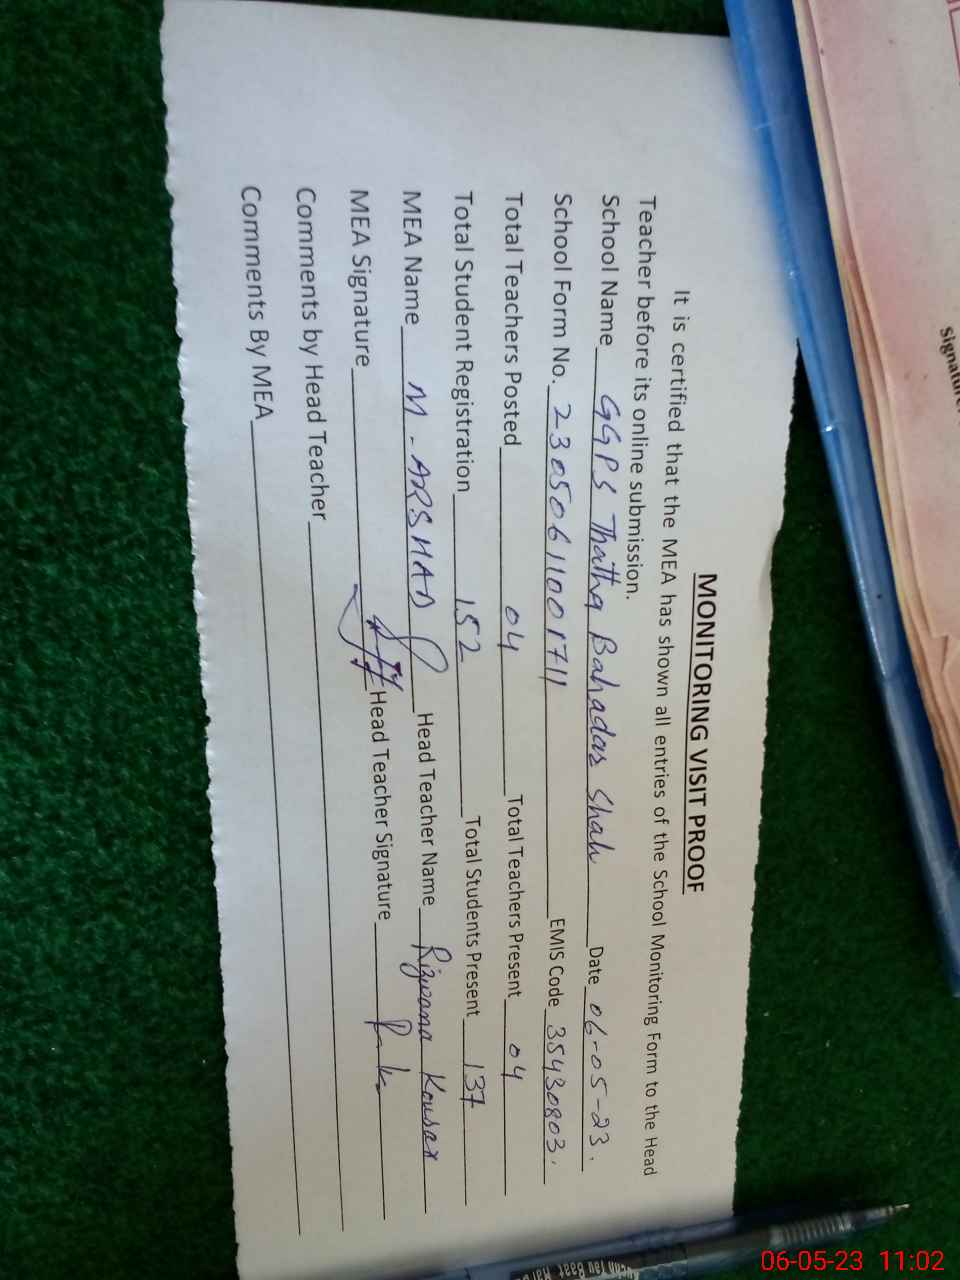 MONITORING VISIT PROOF
It is certified that the MEA has shown all entries of the School Monitoring Form to the Head
Teacher before its online submission.
School Name GGPS Thatha Bahadar Shah Date 06-05-23.
School Form No. 23050611001711 EMIS Code 35430803.
Total Teachers Posted 04 Total Teachers Present 04
Total Student Registration 152 Total Students Present 137
MEA Name M. ARSHAD Head Teacher Name Rizwana Kousar
MEA Signature Head Teacher Signature
Comments by Head Teacher
Comments By MEA
signature
06-05-23 11:02